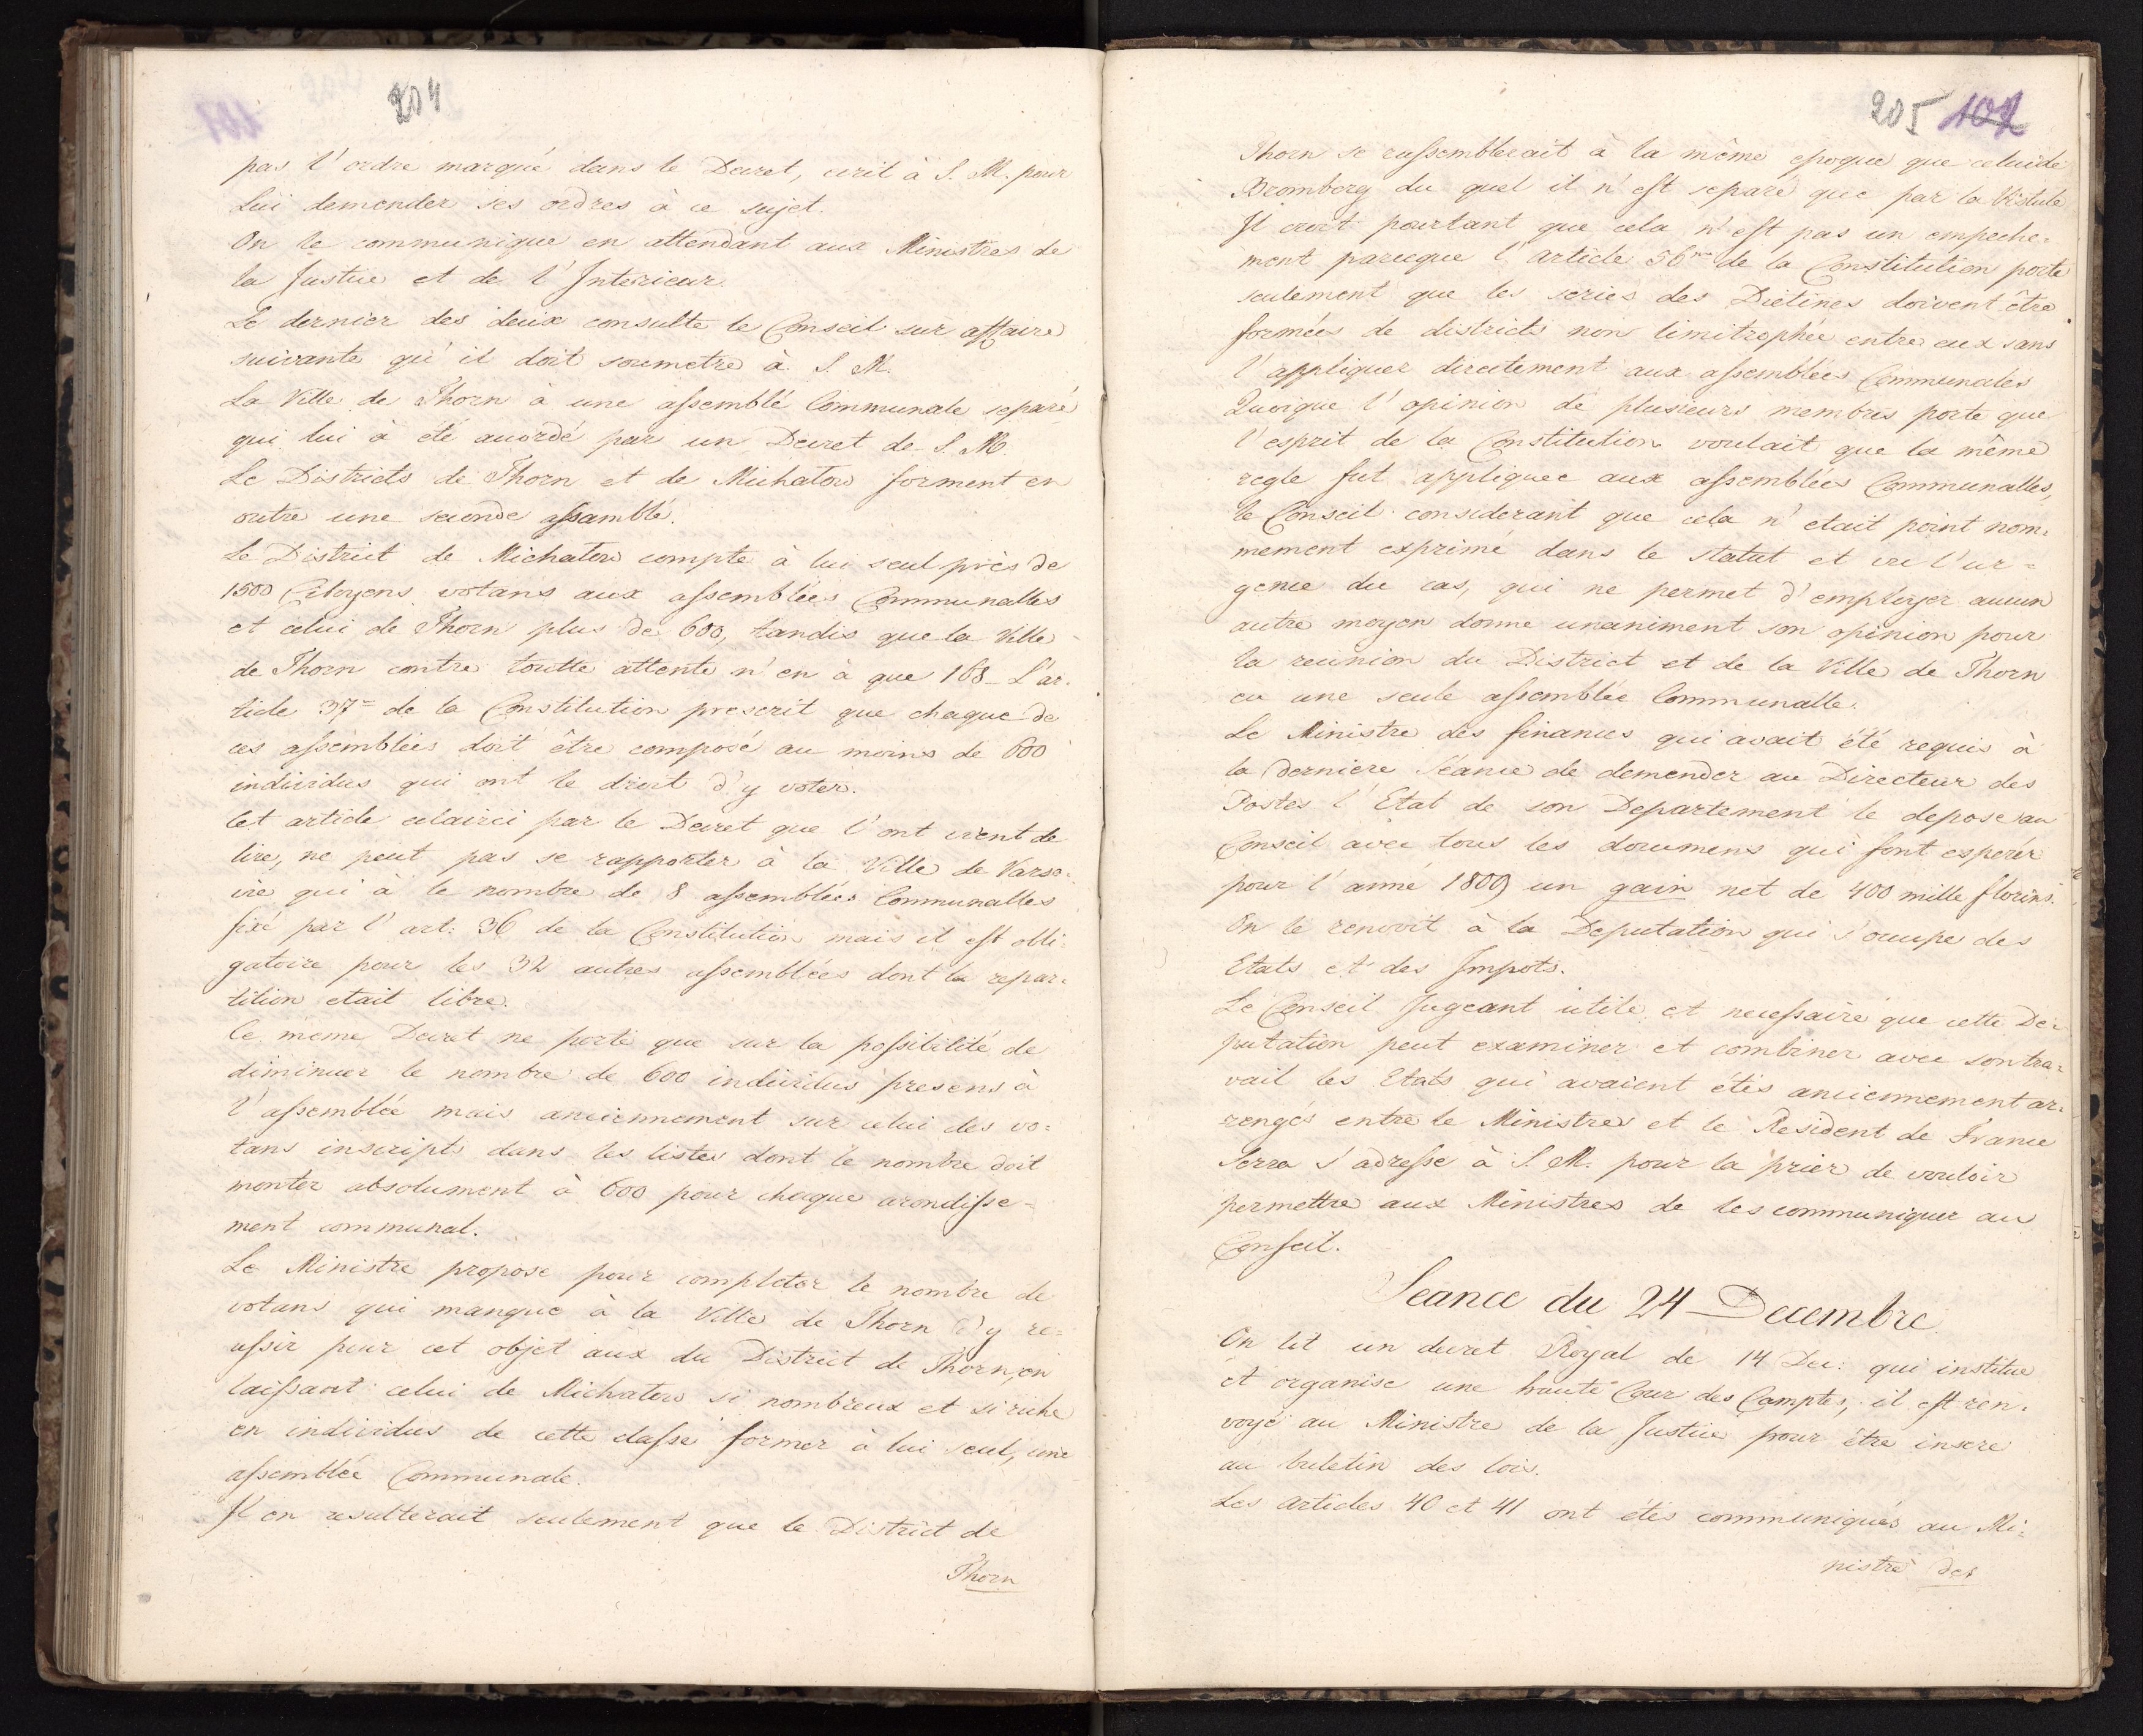 204
pas l'ordre marqué dans le Decret, ecrit à S. M. pour
Lui demender ses ordres à ce sujet.
On le communique en attendant aux Ministres de
la Justice et de l'Interieur.
Le dernier des deux consulte le Conseil sur affaire
suivante qu'il doit soumetre à S. M.
La Ville de Thorn à une assemblé Communale separé
qui lui à eté accordé par un Decret de S. M
Le Districts de Thorn et de Michatow forment en
outre une seconde assamblé.
Le District de Michatow compte à lui seul près de
1500 Citoyens votans aux assemblées Communalles
et celui de Thorn plus de 600, tandis que la Ville
de Thorn contre toutte attente n'en à que 168_ L'ar-
ticle 37me de la Constitution prescrit que chaque de
ces assemblées doit être composé au moins de 600
individus qui ont le droit d'y voter.
Cet article eclairci par le Decret que l'ont vient de
lire, ne peut pas se rapporter à la Ville de Varso-
vie qui à le nombre de 8 assemblées Communalles
fixé par l'art: 36 de la Constitution mais il est obli-
gatoire pour les 32 autres assemblées dont la repar-
tition etait libre.
Ce meme Decret ne porte que sur la possibilité de
diminuer le nombre de 600 individus presens à
l'assemblée mais anciennement sur celui des vo=
tans inscripts dans les listes dont le nombre doit
monter absolument à 600 pour chaque arondisse-
ment communal.
Le Ministre propose pour completer le nombre de
votans qui manque à la Ville de Thorn d'y re=
ussir pour cet objet aux du District de Thorn, en
laissant celui de Michatow si nombreux et si riche
en individus de cette classe former à lui seul, une
assemblée Communale.
Il en resulterait seulement que le District de
Thorn
205 102
Thorn se rassemblerait à la même epoque que celui de
Bromberg du quel il n'est separé que par la Vistule
Il croit pourtant que cela n'est pas un empeche=
ment parceque l'article 56me de la Constitution porte
seulement que les series des Diétines doivent être
formées de districts non limitrophée entre eux sans
l'appliquer directement aux assemblées Communales
Quoique l'opinion de plusieurs membres porte que
l'esprit de la Constitution voulait que la même
regle fut appliquee aux assemblées Communalles,
le Conseil considerant que cela n'etait point nom-
mement exprimé dans le statut et vu l'ur=
gence du cas, qui ne permet d'employer aucun
autre moyen donne unaniment son opinion pour
la reunion du District et de la Ville de Thorn
en une seule assemblée Communalle.
Le Ministre des finances qui avait été requis à
la derniere Séance de demender au Directeur des
Postes l'Etat de son Departement le depose au
Conseil avec tous les documens qui font esperér
pour l'anné 1809 un gain net de 400 mille florins.
On le renvoit à la Deputation qui s'occupe des
Etats et des Impots.
Le Conseil Jugeant utile et necessaire que cette De-
putation peut examiner et combiner avec son tra=
vail les Etats qui avaient étés anciennement ar-
rengés entre le Ministres et le Resident de France
Serra s'adresse à S. M. pour la prier de vouloir
permettre aux Ministres de les communiquer au
Conseil.
Seance du 24 Decembre
On lit un decret Royal de 14 Dec: qui institue
et organise une haute Cour des Comptes, il est ren-
voyé au Ministre de la Justice pour être insere
au buletin des lois.
Les articles 40 et 41 ont étés communiqués au Mi=
nistre des